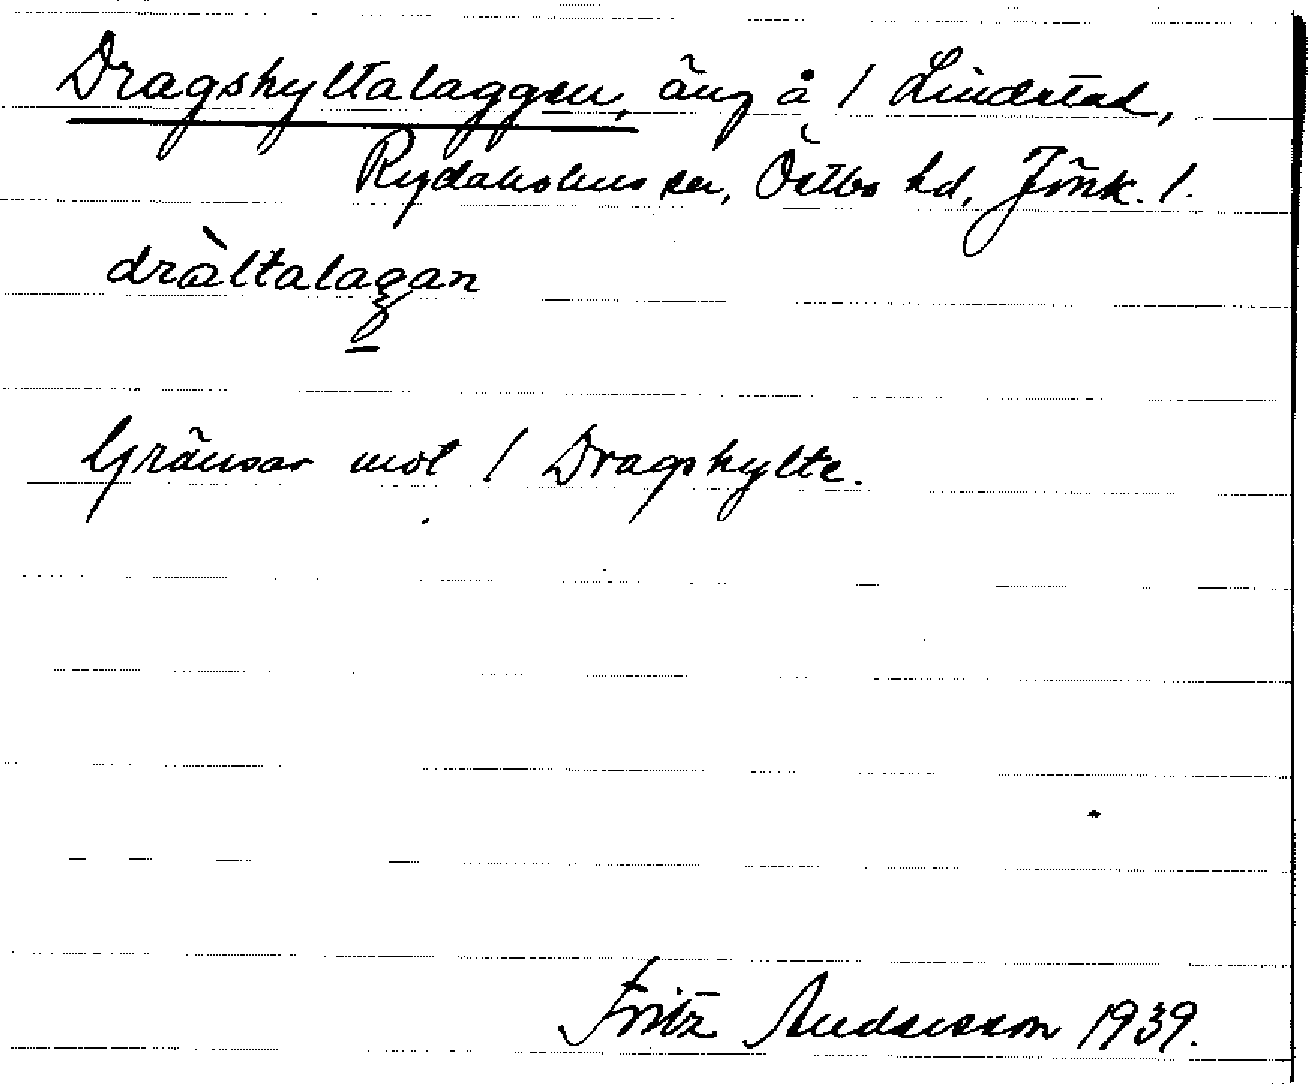 Dragshyltalaggen, äng å / Lindstad,
Rydaholms sn, Östbo hd, Jönk. l.
dràltalagan
Gränsar mot / Dragshylte.
Fritz Andersson 1939.